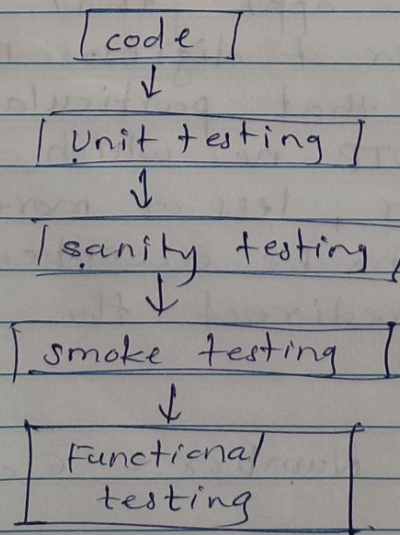 code
Unit testing
sanity testing
smoke testing
Functional
testing